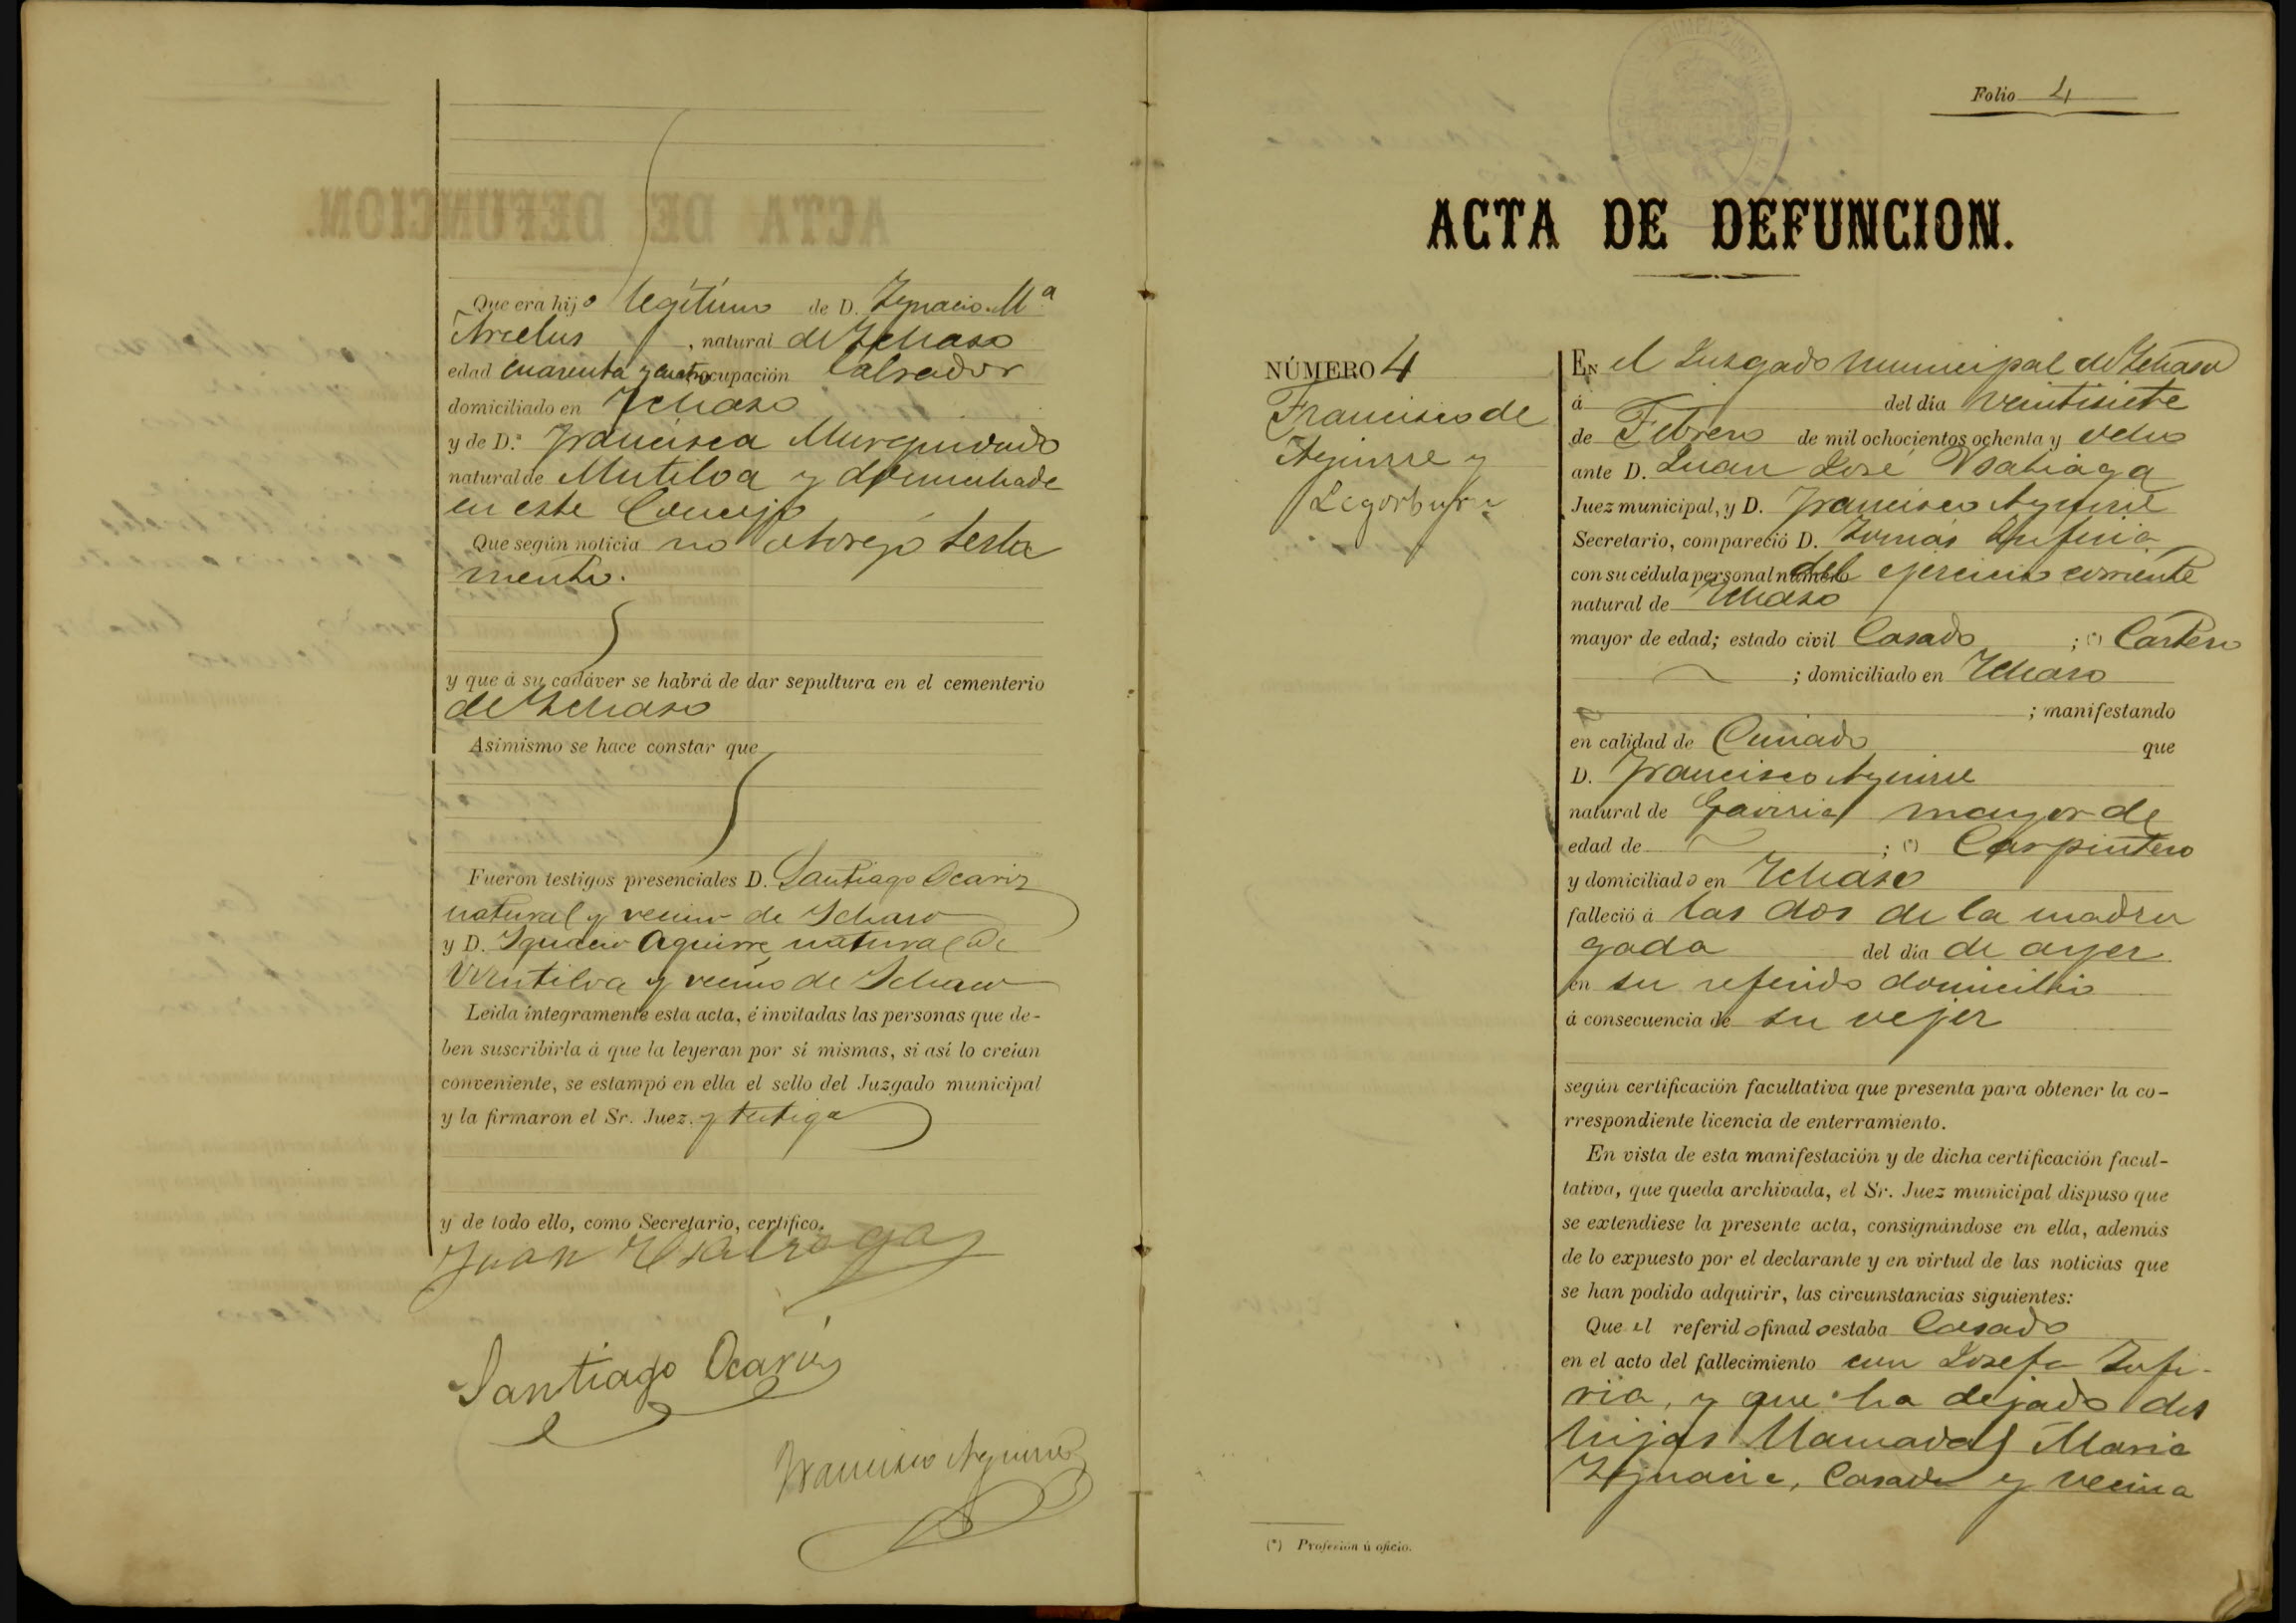 Que era hijo legítimo de D. Ygnacio Mª
Arcelus, natural de Ychaso
edad cuarenta y cuatro ocupación labrador
domiciliado en Ychaso
y de D.ª Francisca Murguiondo
natural de Mutiloa y domiciliada
en este Concejo
Que según noticia no otorgó testa
mento.
y que á su cadáver se habrá de dar sepultura en el cementerio
de Ychaso
Asimismo se hace constar que
Fueron testigos presenciales D. Santiago Ocariz
natural y vecino de Ychaso
y D. Ignacio Aguirre, natural de
Mutiloa y vecino de Ychaso
Leida íntegramente esta acta, é invitadas las personas que de-
ben suscribirla á que la leyeran por sí mismas, si así lo creían
conveniente, se estampó en ella el sello del Juzgado municipal
y la firmaron el Sr. Juez. y testigo
y de todo ello, como Secretario, certifico.
Juan Usatiaga
Santiago Ocariz
Francisco Aguirre
Folio 4
ACTA DE DEFUNCION.
NÚMERO 4
Francisco de
Aguirre y
Legorburu
EN el Juzgado municipal de Ychaso
á del día veintisiete
de Febrero de mil ochocientos ochenta y ocho
ante D. Juan José Usatiaga
Juez municipal, y D. Francisco Aguirre
Secretario, compareció D. Tomás
con su cédula personal número del ejercicio corriente
natural de Ychaso
mayor de edad; estado civil Casado ; (*) Cartero
; domiciliado en Ychaso
; manifestando
en calidad de Cuñado que
D. Francisco Aguirre
natural de Gaviria mayor de
edad de ; (*) Carpintero
y domiciliado en Ychaso
falleció á las dos de la madru
gada del día de ayer
en su referido domicilio
á consecuencia de su vejez
según certificación facultativa que presenta para obtener la co-
rrespondiente licencia de enterramiento.
En vista de esta manifestación y de dicha certificación facul-
tativa, que queda archivada, el Sr. Juez municipal dispuso que
se extendiese la presente acta, consignándose en ella, además
de lo expuesto por el declarante y en virtud de las noticias que
se han podido adquirir, las circunstancias siguientes:
Que el referido finado estaba Casado
en el acto del fallecimiento con Josefa
y que ha dejado dos
hijas llamadas Maria
Ygnacia, Casada y vecina
(*) Profesión ú oficio.